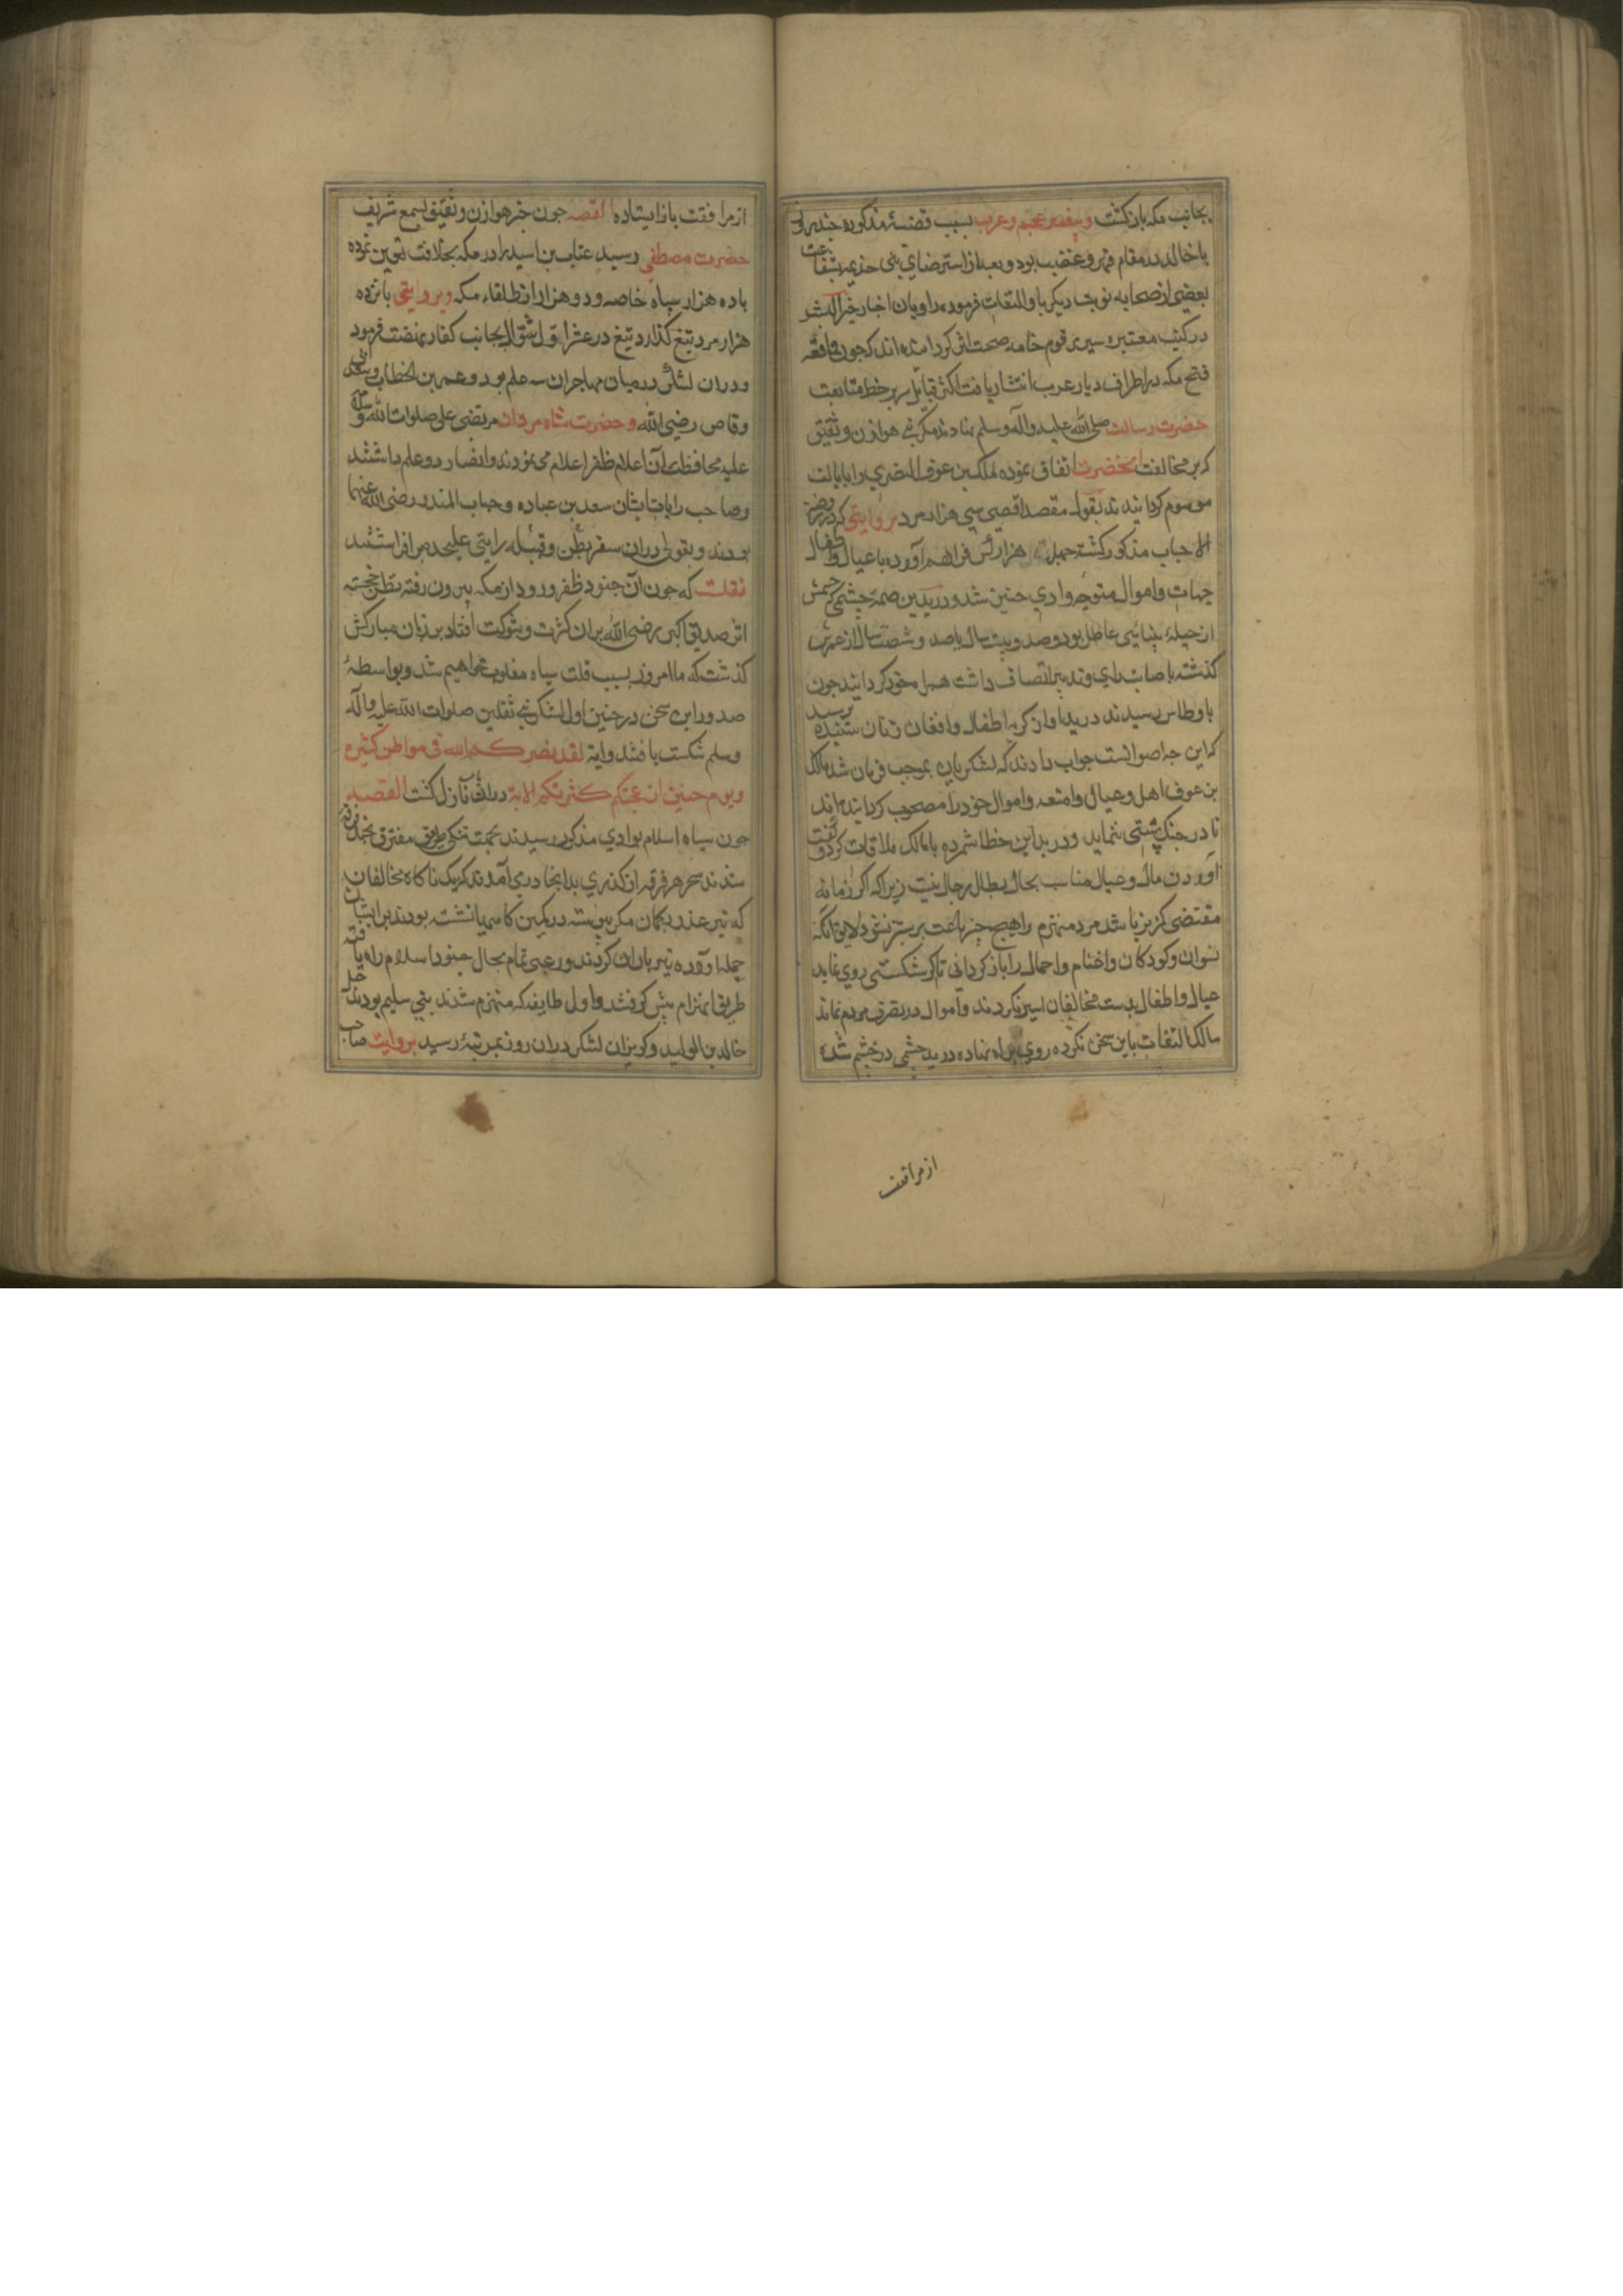 بجانب مکه بازکشت و پیغمبر عجم و عرب بسبب قضیهٔ مذکوره چند روز
با خالد در مقام قهر و غضب بود و بعد از استرضای بنی جذیمه بشفاعت
بعضی از صحابه نوبت دیکر باو التفات فرموده راویان اخبار خیر البشر
در کتب معتبره سیر مرقوم خامه صحت اثر کردانیده اند که چون واقعه
فتح مکه در اطراف دیار عرب انتشار یافت اکثر قبایل سر بر خط متابعت
حضرت رسالت صلی الله علیه وآله وسلم نهادند مکر بنی هوازن و ثقیف
که بر مخالفت آنحضرت اتفاق نموده مالک بن عوف النصری را بایالت
موسوم کردانیدند بقول مقصد اقصی سی هزار مرد بروایتی که در روضة
الاحباب مذکور کشته چهار هزار کس فراهم آورده با عیال و اطفال
جهات و اموال متوجه وادی حنین شد و درید بن صمه جشمی که چشمش
از حیلهٔ بینائی عاطل بود و صد و بیست سال یا صد و شصت سال از عمرش
کذشته باصابت رای و تدبیر اتصاف داشت همراه خود کردانید چون
باوطاس رسیدند درید اواز کریه اطفال و افغان زنان شنیده پرسید
که این چه اصواتست جواب دادند که لشکریان بموجب فرمان شد مالک
بن عوف اهل و عیال و امتعه و اموال خود را مصحوب کردانیده اند
تا در جنک پشتی ننماید و درید این خطا شمرده با مالک ملاقات کرد و کفت
آوردن مال و عیال مناسب بحال ابطال رجال نیست زیرا که اکر زمانه
مقتضی کریز باشد مرد منهزم را هیچ چیز باعث بر ستیز نشود لایق آنکه
نسوان و کودکان و اغنام و احمال را باز کردانی تا اکر شکستی روی نماید
عیال و اطفال بدست مخالفان اسیر نکردند و اموال در تصرف مردم نماند
مالک التفات باین سخن نکرده روی براه نهاده درید جشمی در خشم شده
از مرافقت
از مرافقت باز ایستاده القصه چون خبر هوازن و ثقیف بسمع شریف
حضرت مصطفی رسید عتاب بن اسید را در مکه بخلافت تعیین نموده
با ده هزار سپاه خاصه و دو هزار از طلقاء مکه و بروایتی پانزده
هزار مرد تیغ کذار در عشر اول شوال بجانب کفار نهضت فرمود
و دران لشکر در میان مهاجران سه علم بود و عمر بن الخطاب و سعد بن ابی
وقاص رضی الله و حضرت شاه مردان مرتضی علی صلوات الله و سلامه
علیه محافظت آن اعلام ظفر اعلام می نمودند و انصار دو علم داشتند
و صاحب رایات ایشان سعد بن عباده و حباب المنذر رضی الله عنهما
بودند و بقولی دران سفر بطن و قبیله رایتی علیحده می افراشتند
نقلست که چون آن جنود ظفر ورود از مکه بیرون رفته نظر خجسته
اثر صدیق اکبر رضی الله بران کثرت و شوکت افتاد بر زبان مبارکش
کذشت که ما امروز بسبب قلت سپاه مغلوب نخواهیم شد و بواسطهٔ
صدور این سخن در حنین اول لشکر نبی ثقلین صلوات الله علیه و آله
وسلم شکست یافتند و ایة لقد نصرکم الله فی مواطن کثیره
و یوم حنین اذ اعجبتکم کثرتکم الایة دران نازل کشت القصه
چون سپاه اسلام بوادی مذکور رسیدند بجهت تنکی طریق متفرق بچند فرقه
شدند سحر هر فرقه از کذری بدانجا در می آمدند که یک ناکاه مخالفان
که تیر غدر بکمان مکر پیوسته در کمین کاه مهیا نشسته بودند بر ایشان
حمله آورده تیر باران کردند و رعبی تمام بحال جنود اسلام راه یافته
طریق انهزام پیش کرفتند و اول طایفه که منهزم شدند بنی سلیم بودند خیل
خالد بن الولید و کریزان لشکر دران روز بمرتبهٔ رسید بروایت صاحب